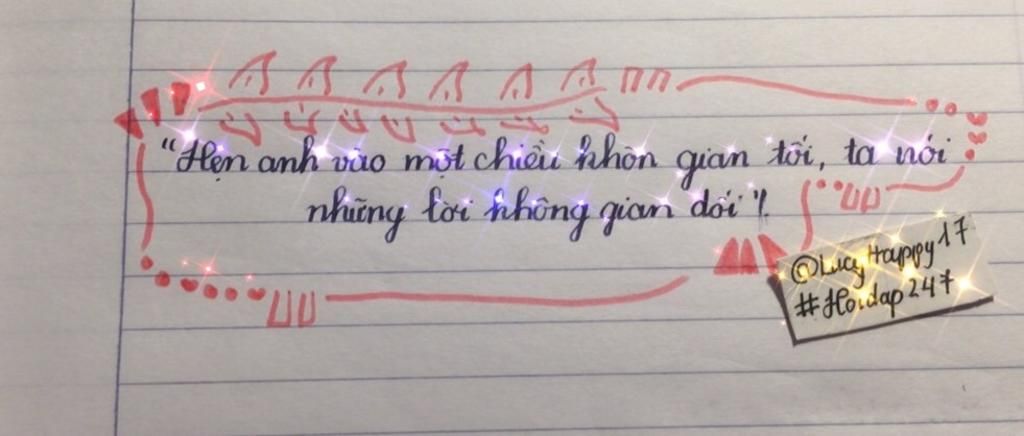 "Hẹn anh vào một chiều khôn gian tối, ta nói
những lời không gian dối"!
@LucyHappy17
#Hoidap247